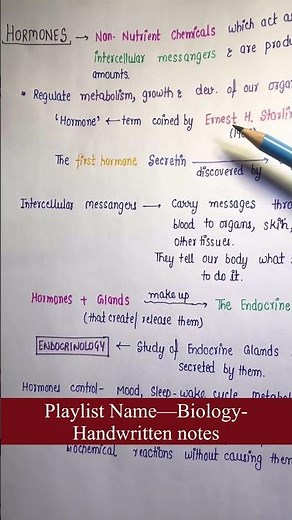 HORMONES → Non-Nutrient Chemicals which act as
intercellular messangers & are produ
amounts.
* Regulate metabolism, growth & dev. of our organ
'Hormone' ← term coined by Ernest H. Starlin
The first hormone Secretin →
discovered by
Intercellular messangers → Carry messages thro
blood to organs, skin,
other tissues.
They tell our body what
to do it.
Hormones + Glands make up → The Endocrine
(that create/release them)
ENDOCRINOLOGY ← Study of Endocrine Glands
secreted by them.
Hormones control- Mood, Sleep-wake cycle, metabol
Playlist Name—Biology-
Handwritten notes
biochemical reactions without causing them